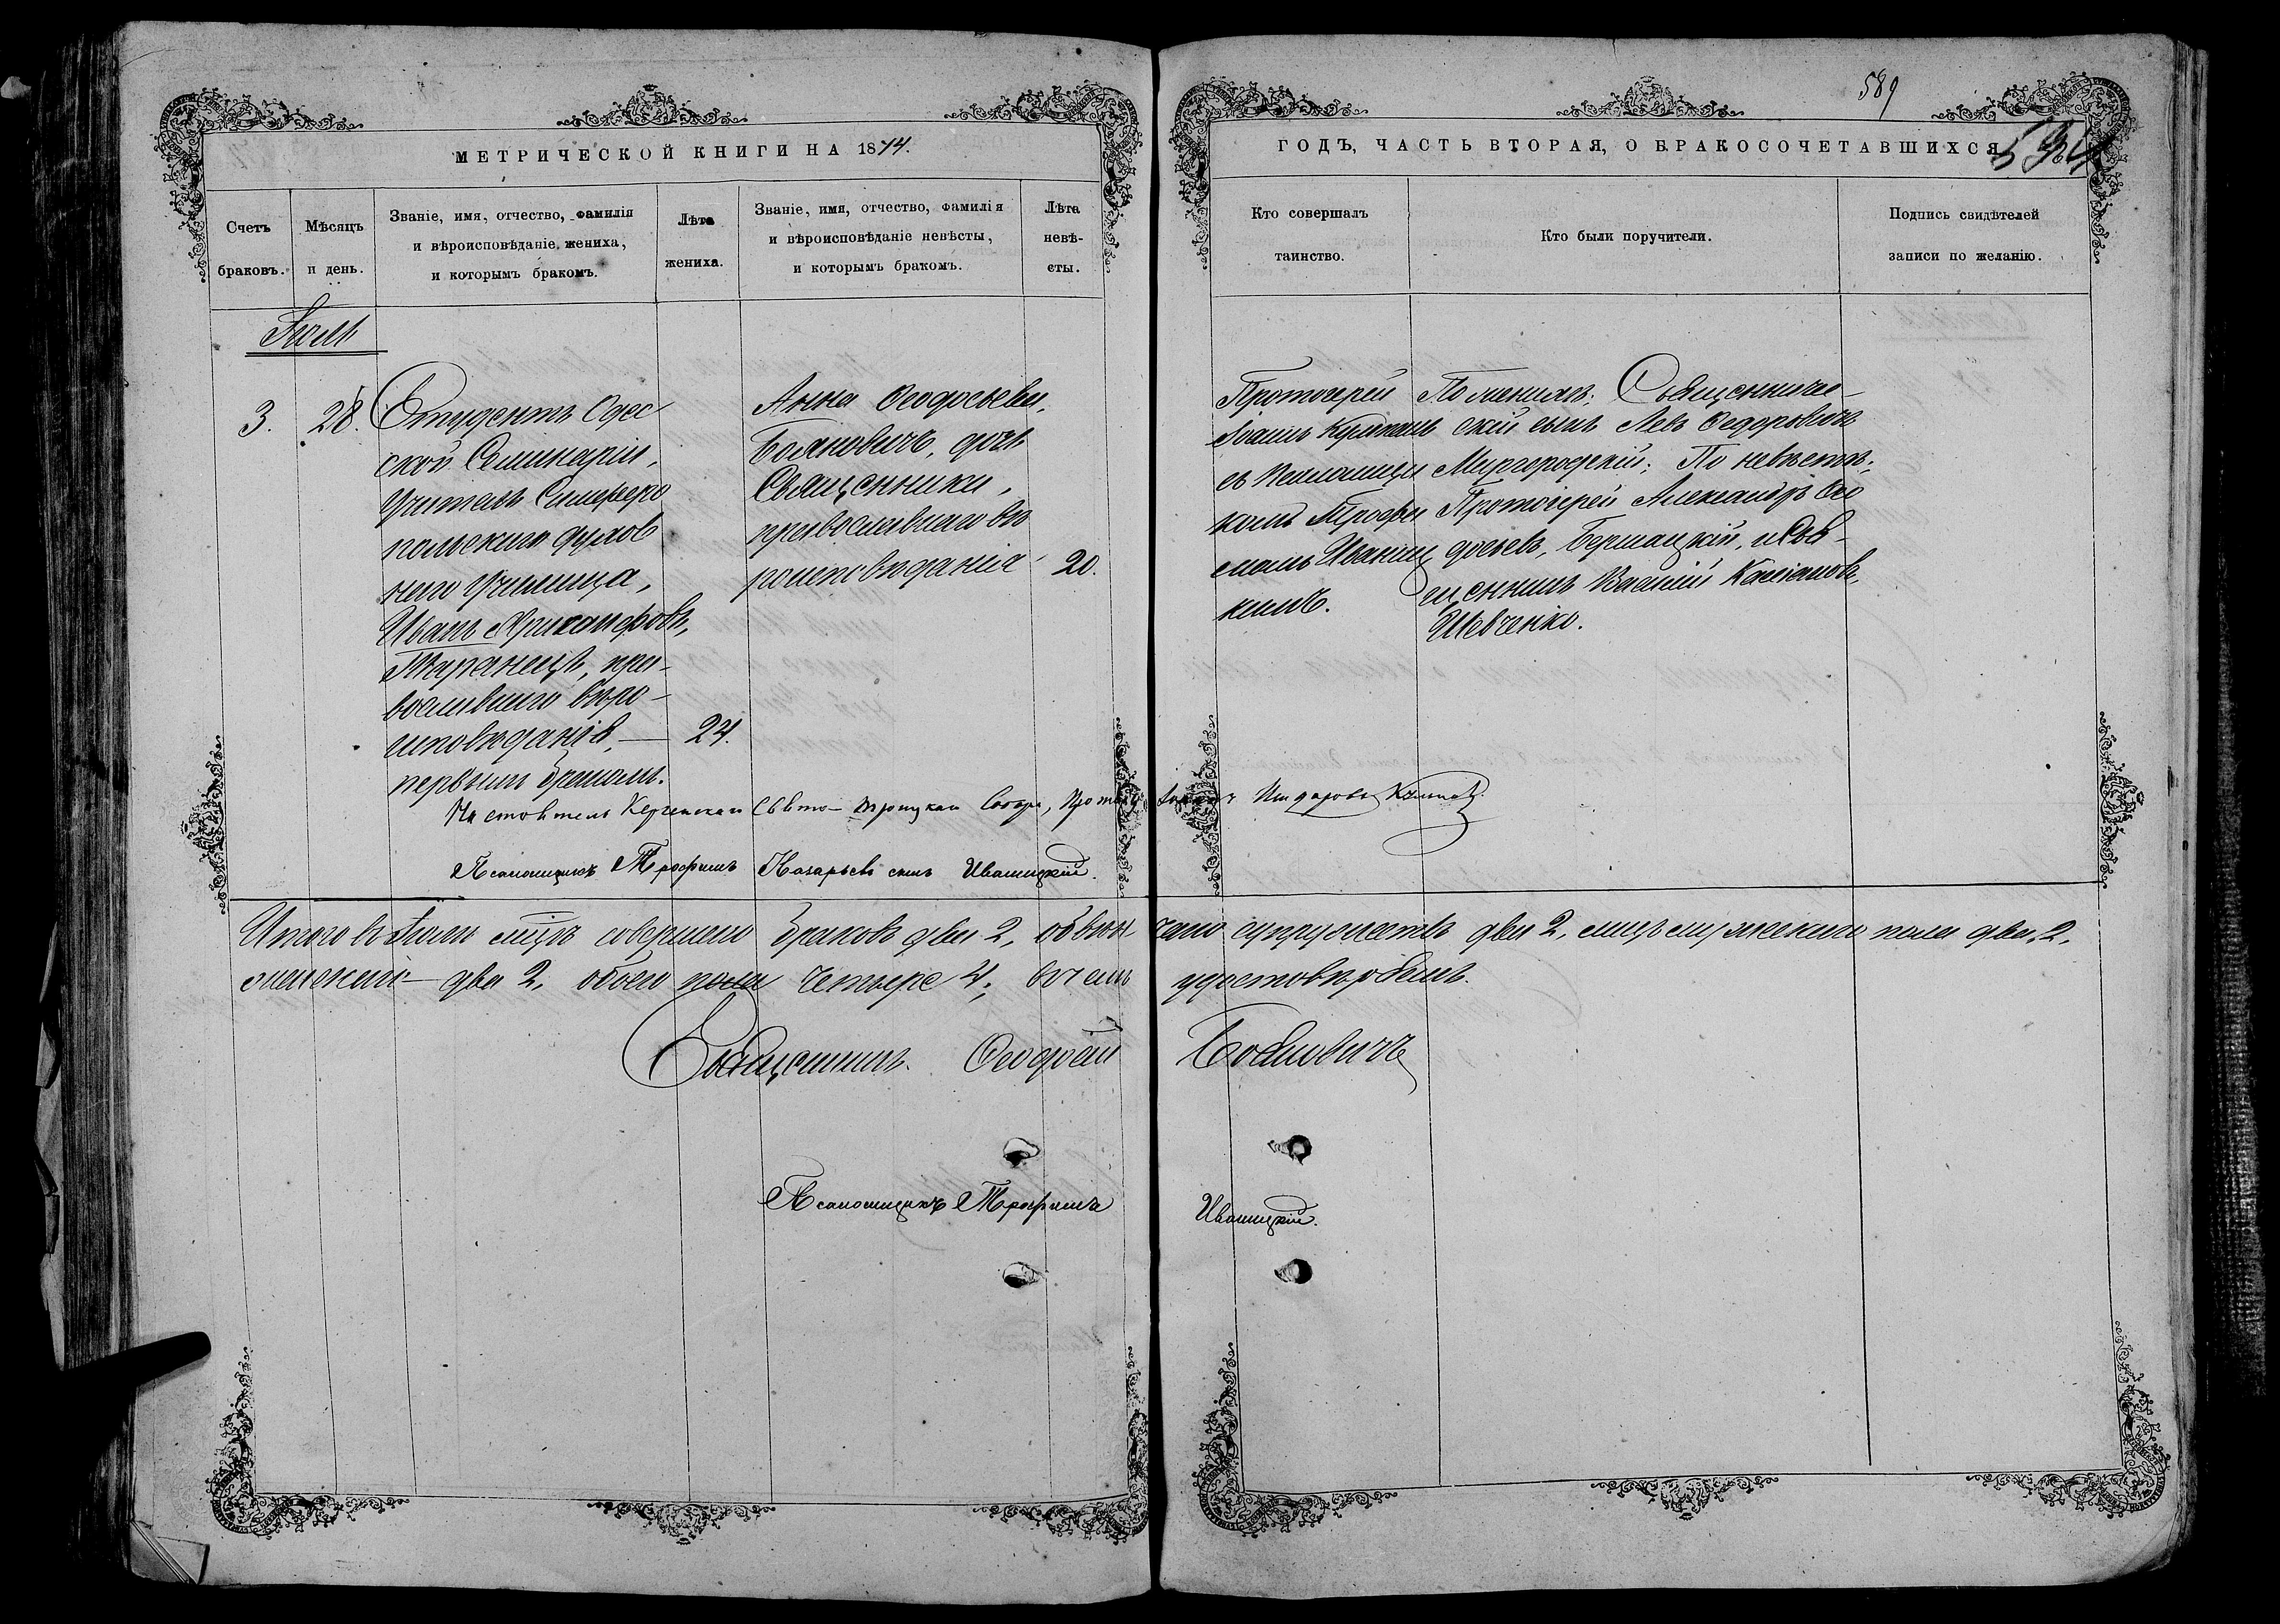 589
594
МЕТРИЧЕСКОЙ КНИГИ НА 1874.
ГОДЪ, ЧАСТЬ ВТОРАЯ, О БРАКОСОЧЕТАВШИХСЯ
Счетъ
браковъ.
Мѣсяцъ
и день.
Званіе, имя, отчество, фамилія
и вѣроисповѣданіе жениха,
и которымъ бракомъ.
Лѣта
жениха.
Званіе, имя, отчество, фамилія
и вѣроисповѣданіе невѣсты,
и которымъ бракомъ.
Лѣта
невѣ-
сты.
Кто совершалъ
таинство.
Кто были поручители.
Подпись свидѣтелей
записи по желанію.
3.
28.
Студентъ Одес
ской Семинаріи,
Учитель Симферо
польскаго духов
наго Училища,
Иванъ
пра-
вославнаго вѣро-
исповѣданія, —
первымъ бракомъ.
24.
Анна Ѳеодосьева,
Бояновичъ, дочь
Священника,
православнаго вѣ
роисповѣданія
20.
Протоіерей
Іоаннъ
съ Псаломщи
комъ Трофи
момъ Иваниц
кимъ.
По женихѣ: Священниче-
скій сынъ Левъ Ѳедоровичъ
Миргородскій; По невѣстѣ:
Протоіерей Александръ Ѳео
досьевъ, и Свя-
щенникъ Василій
Шевченко.
Настоятель Керченскаго Свято-Троицкаго Собора, Протоіерей Іоаннъ
Псаломщикъ Трофимъ Назарьевъ сынъ Иваницкій.
Итого въ Іюлѣ мѣцѣ совершено браковъ два 2, обвѣн чано супружествъ два 2, лицъ мужескаго пола два, 2,
женскаго — два 2, обоего пола четыре 4; въ чемъ удостовѣряемъ.
Священникъ Ѳеодосій Бояновичъ
Псаломщикъ Трофимъ Иваницкій.